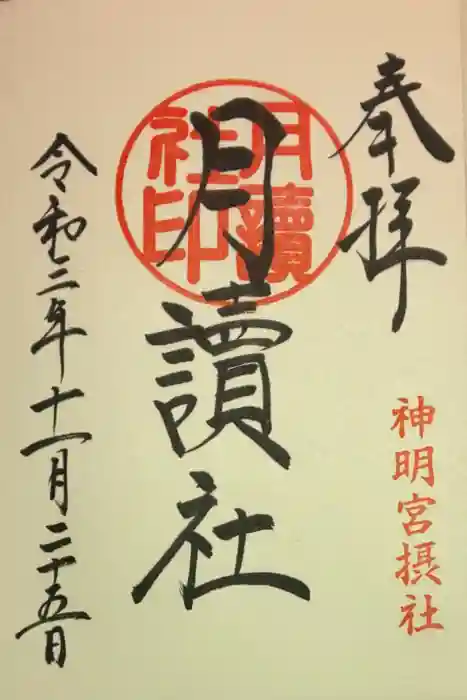 奉拝
神明宮摂社
月讀社
月讀社印
令和三年十一月二十五日